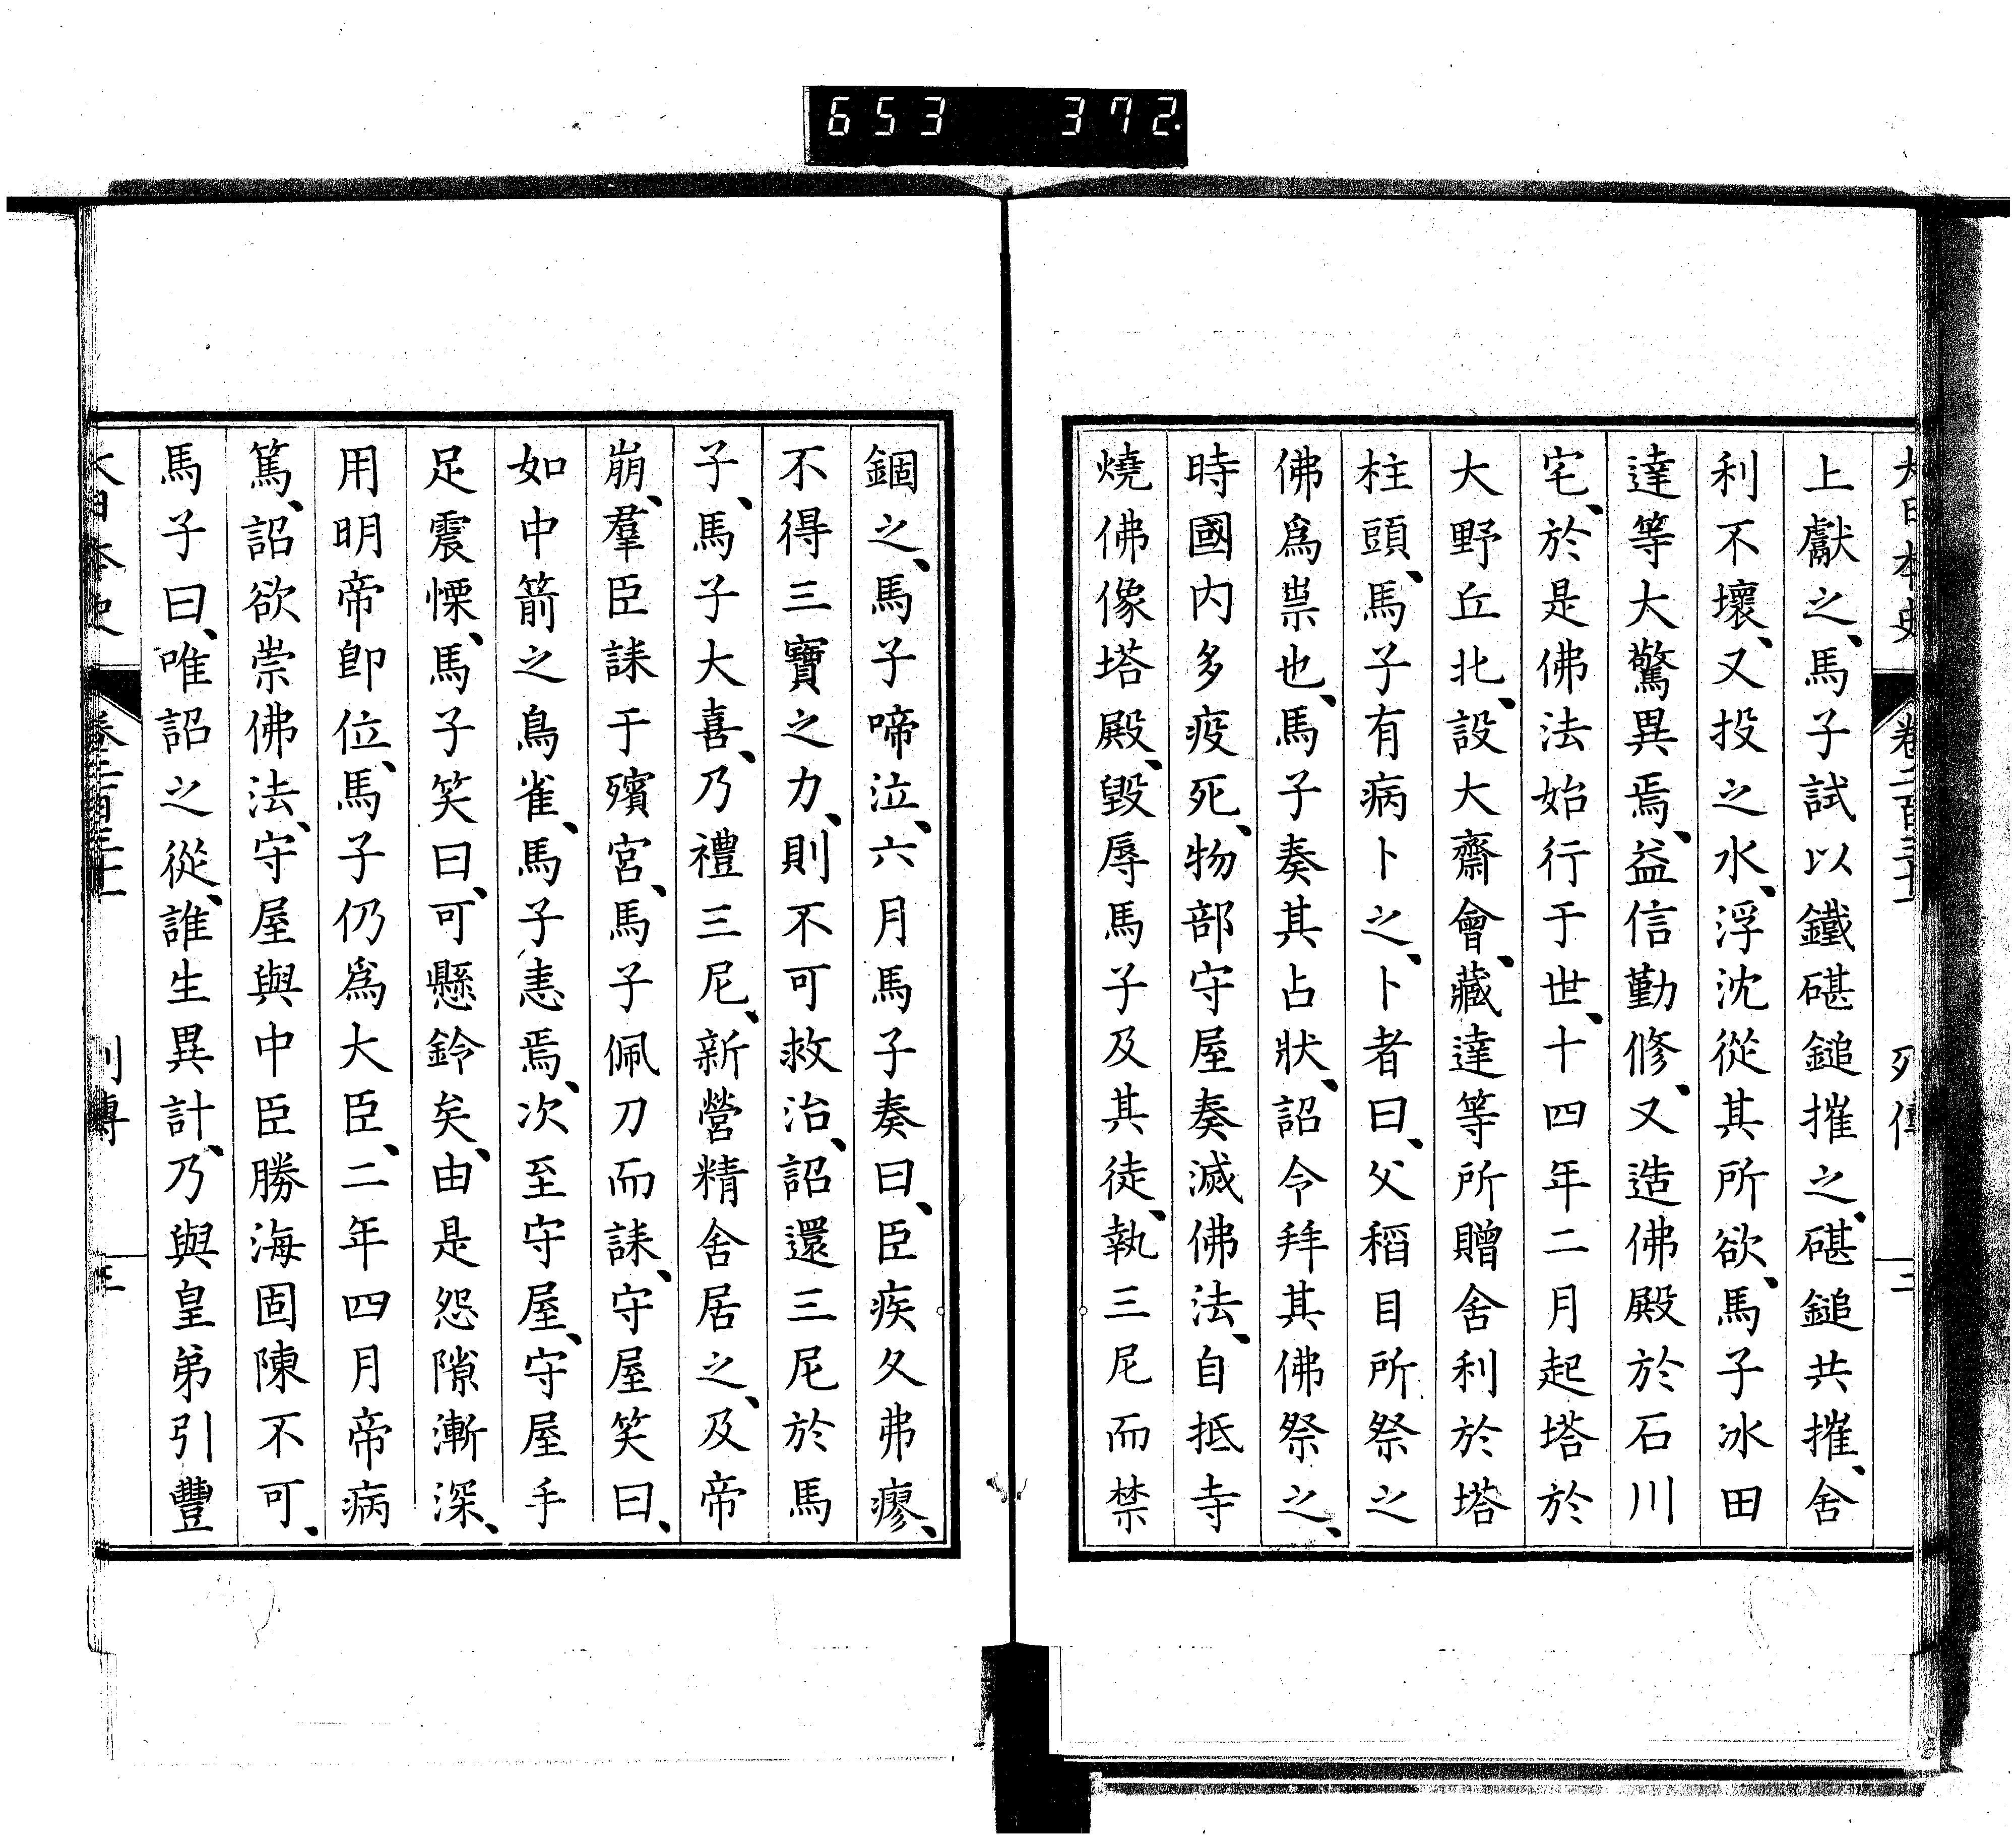 653 372.
大日本史 卷二百三十一 列傳 二
上獻之、馬子試以鐵碪鎚摧之、碪鎚共摧、舍
利不壞、又投之水、浮沈從其所欲、馬子冰田
達等大驚異焉、益信勤修、又造佛殿於石川
宅、於是佛法始行于世、十四年二月起塔於
大野丘北、設大齋會、藏達等所贈舍利於塔
柱頭、馬子有病卜之、卜者曰、父稻目所祭之
佛爲祟也、馬子奏其占狀、詔令拜其佛祭之、
時國內多疫死、物部守屋奏滅佛法、自抵寺
燒佛像塔殿、毀辱馬子及其徒、執三尼而禁
錮之、馬子啼泣、六月馬子奏曰、臣疾久弗瘳、
不得三寶之力、則不可救治、詔還三尼於馬
子、馬子大喜、乃禮三尼、新營精舍居之、及帝
崩、羣臣誄于殯宮、馬子佩刀而誄、守屋笑曰、
如中箭之鳥雀、馬子恚焉、次至守屋、守屋手
足震慄、馬子笑曰、可懸鈴矣、由是怨隙漸深、
用明帝卽位、馬子仍爲大臣、二年四月帝病
篤、詔欲崇佛法、守屋與中臣勝海固陳不可、
馬子曰、唯詔之從、誰生異計、乃與皇弟引豐
大日本史 卷二百三十一 列傳 三